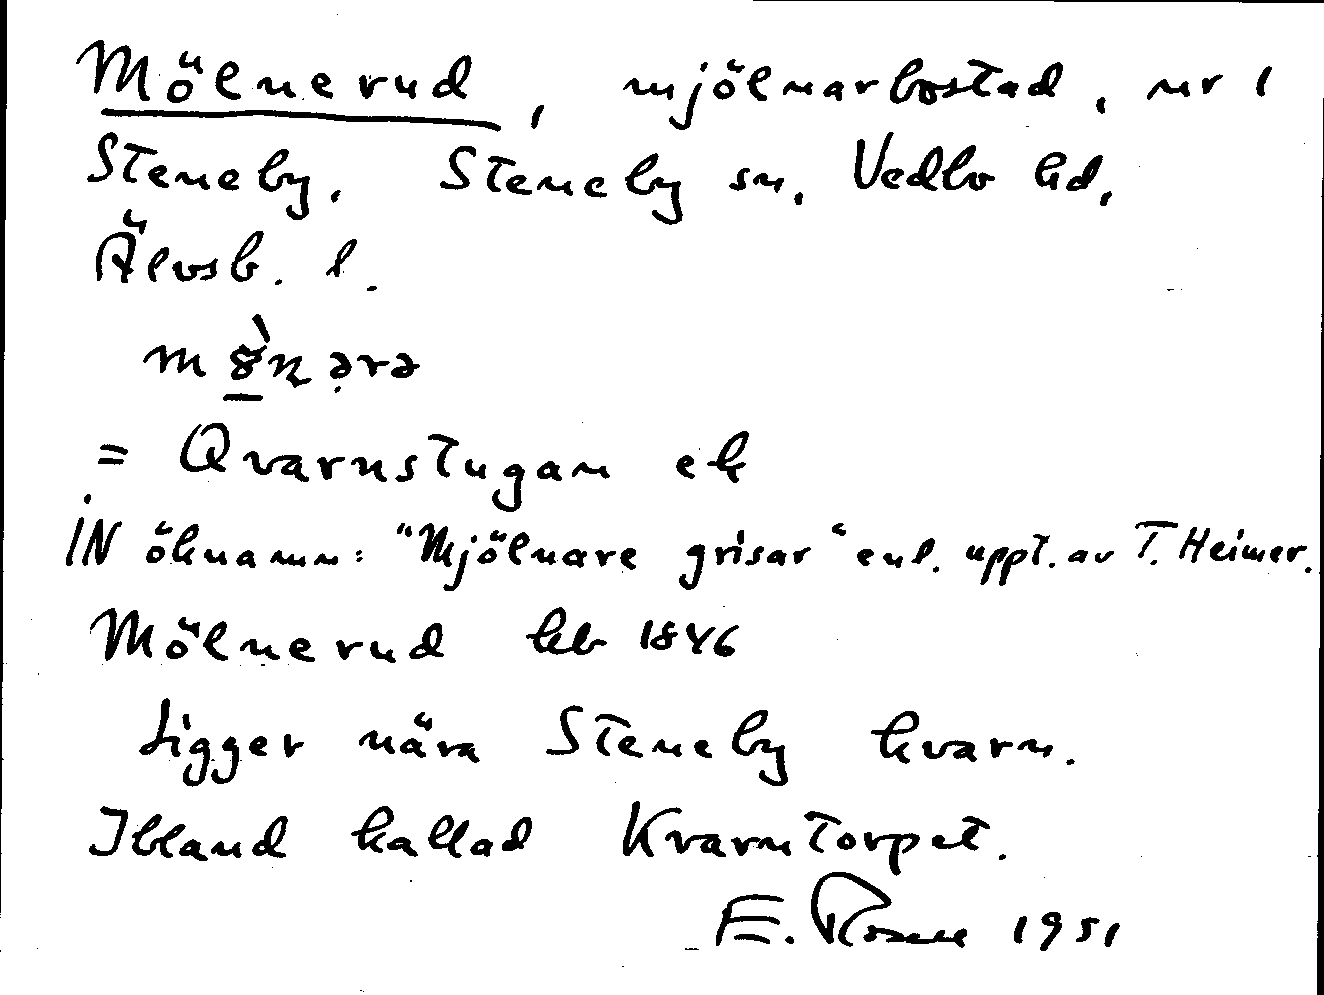 Mölnerud, mjölnarbostad, nr 1
Steneby, Steneby sn, Vedbo hd,
Älvsb. l.
= Qvarnstugan ek
IN öknamn: "Mjölnare grisar" enl. uppt. av T. Heimer.
Mölnerud hb 1846
Ligger nära Steneby kvarn.
Ibland kallad Kvarntorpet.
E. Rosell 1951